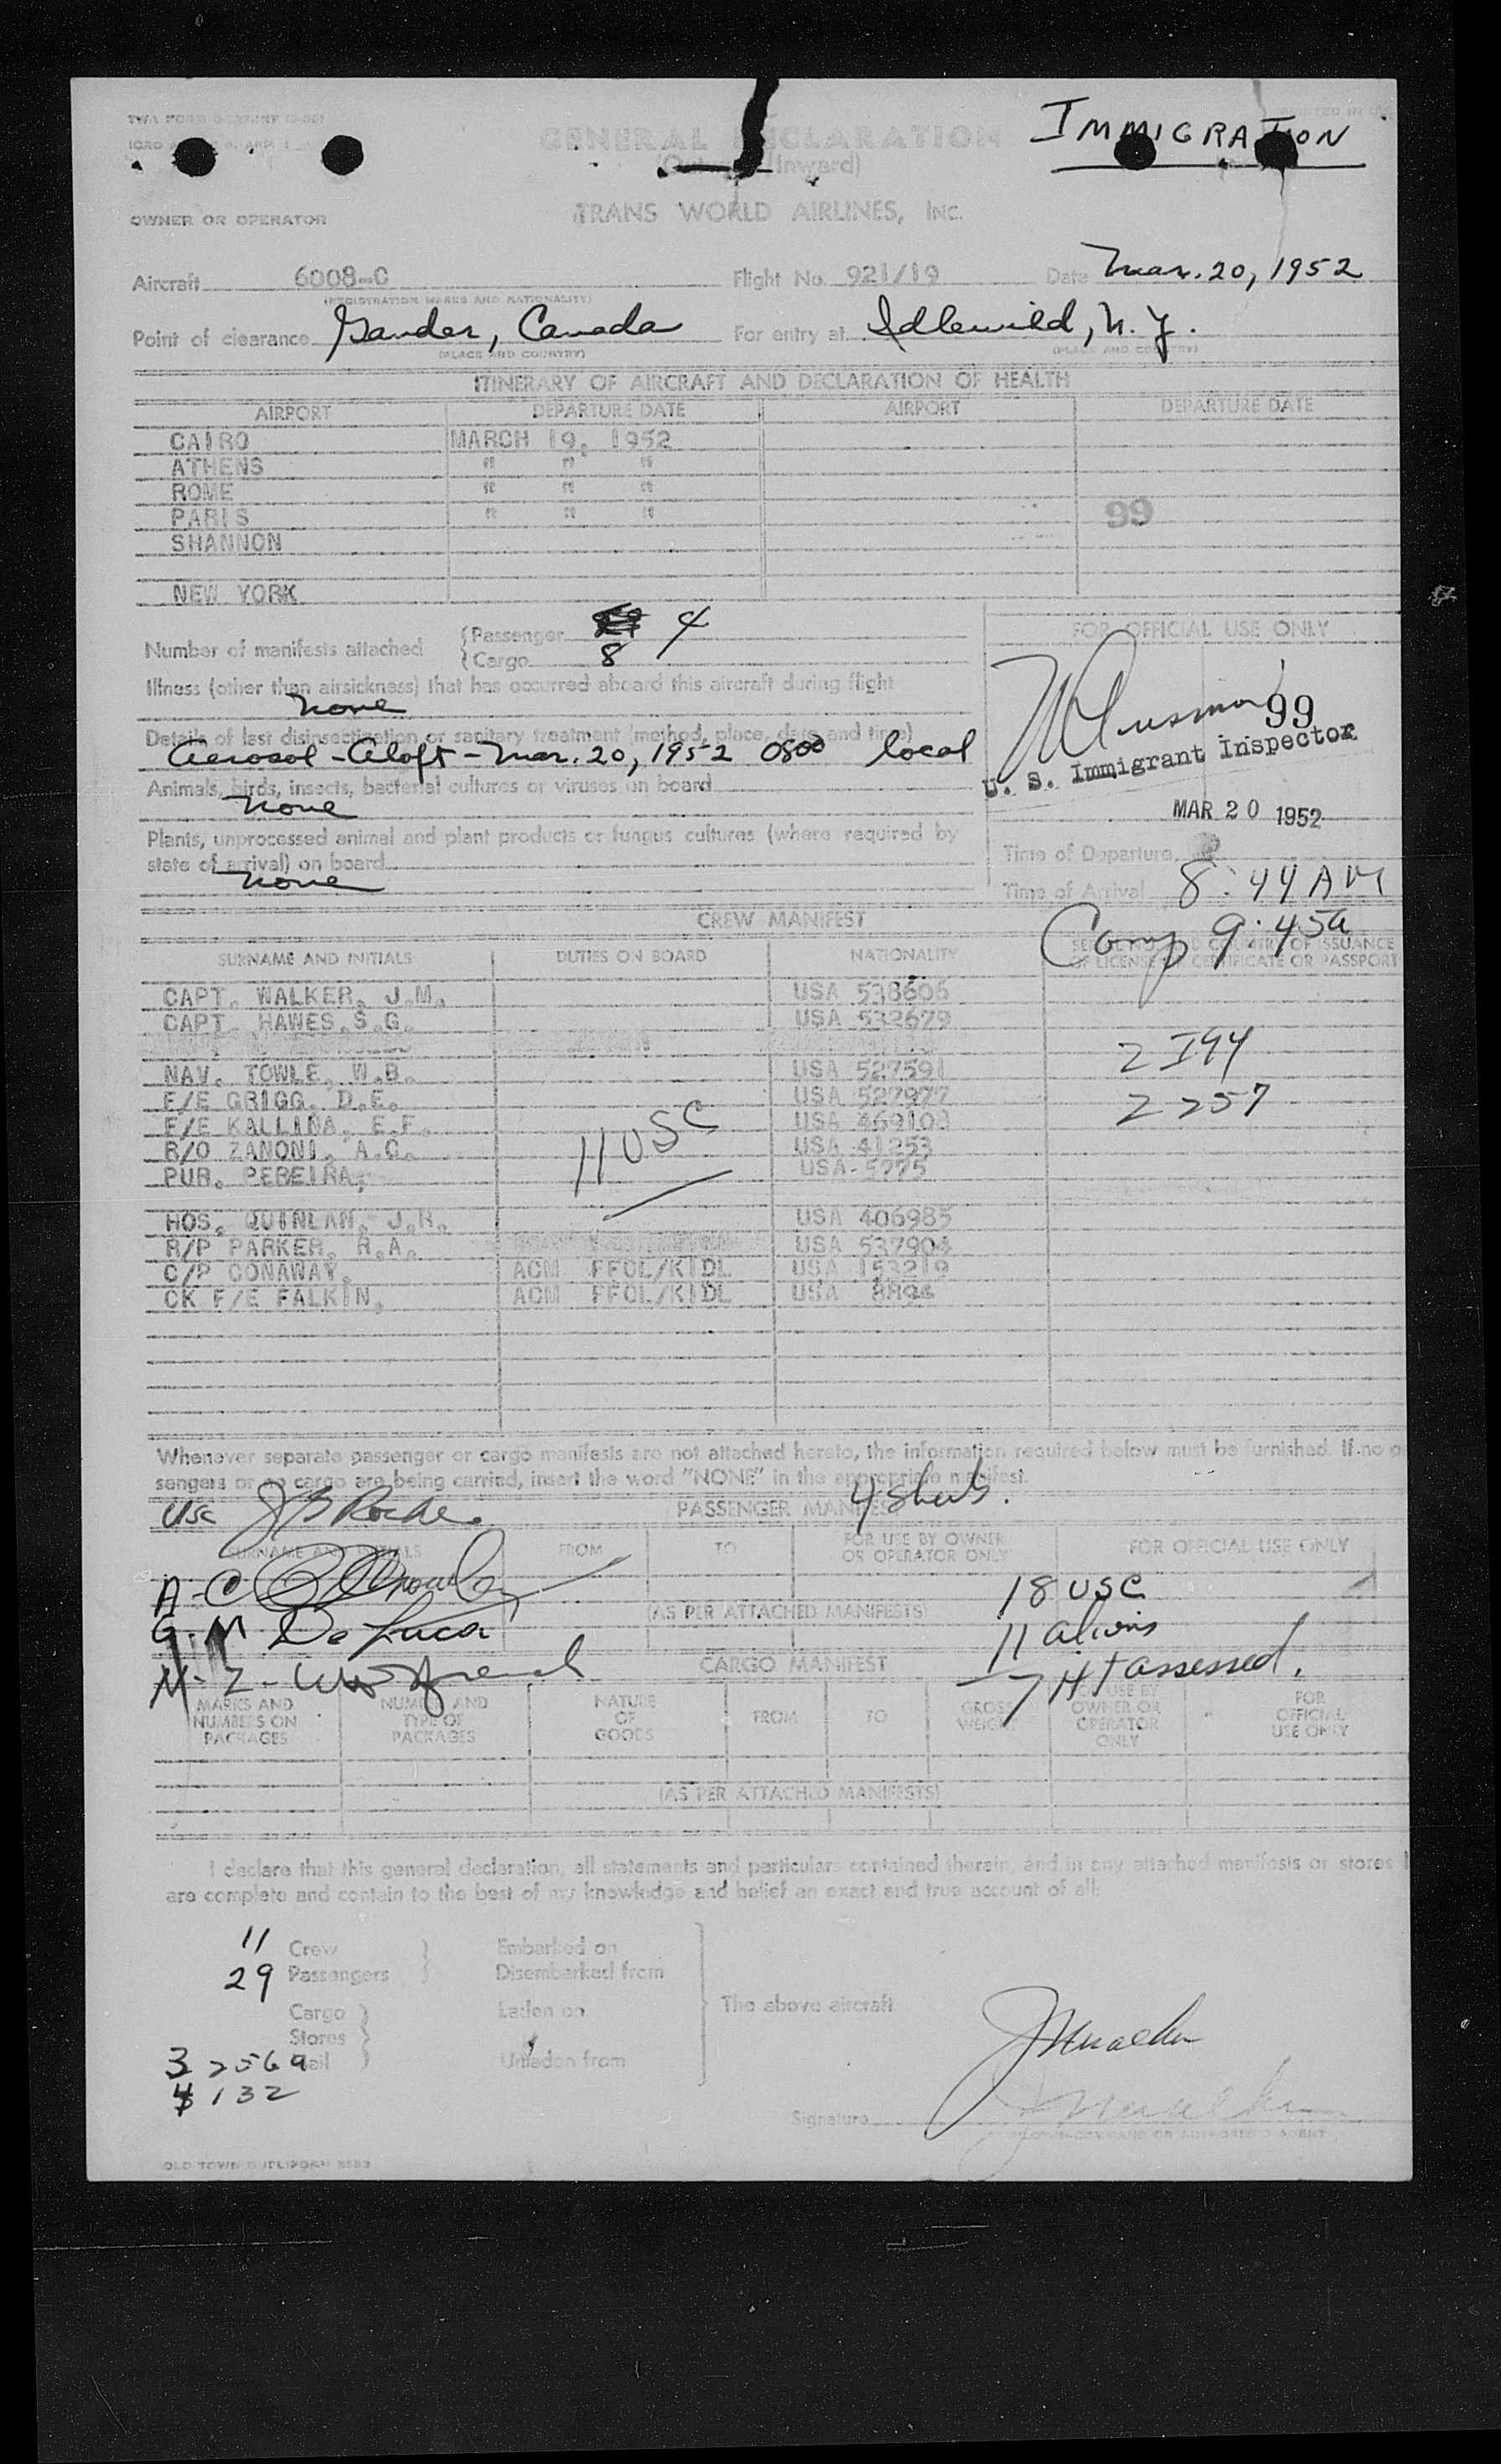 IMMIGRATION
GENERAL DECLARATION
(Outward/Inward)
OWNER OR OPERATOR TRANS WORLD AIRLINES, INC.
Aircraft 6008-C Flight No. 921/19 Date Mar. 20, 1952
(REGISTRATION MARKS AND NATIONALITY)
Point of clearance Gander, Canada For entry at Idlewild, N.Y.
(PLACE AND COUNTRY) (PLACE AND COUNTRY)
ITINERARY OF AIRCRAFT AND DECLARATION OF HEALTH
AIRPORT DEPARTURE DATE AIRPORT DEPARTURE DATE
CAIRO MARCH 19, 1952
ATHENS " " "
ROME " " "
PARIS " " " 99
SHANNON
NEW YORK
Number of manifests attached
Passenger 4
Cargo 8
FOR OFFICIAL USE ONLY
Illness (other than airsickness) that has occurred aboard this aircraft during flight
None
99
Details of last disinsectization or sanitary treatment (method, place, date and time)
Aerosol - Aloft - Mar. 20, 1952 0800 local
U. S. Immigrant Inspector
Animals, birds, insects, bacterial cultures or viruses on board
None
MAR 20 1952
Plants, unprocessed animal and plant products or fungus cultures (where required by
state of arrival) on board
None
Time of Departure
Time of Arrival 8:44 AM
Comp 9:45a
CREW MANIFEST
SURNAME AND INITIALS DUTIES ON BOARD NATIONALITY SERIAL NO. AND COUNTRY OF ISSUANCE
OF LICENSE OR CERTIFICATE OR PASSPORT
CAPT. WALKER, J.M. USA 538606
CAPT. HAWES, S.G. USA 532679
2 I94
NAV. TOWLE, W.B. USA 527591
F/E GRIGG, D.E. USA 527977
2 257
F/E KALLINA, E.F. USA 469108
11 USC
R/O ZANONI, A.C. USA 41253
PUR. PEREIRA, USA 5775
HOS. QUINLAN, J.R. USA 406985
R/P PARKER, R.A. USA 537904
C/P CONAWAY, ACM FFOL/KIDL USA 153219
CK F/E FALKIN, ACM FFOL/KIDL USA 8894
Whenever separate passenger or cargo manifests are not attached hereto, the information required below must be furnished. If no
sengers or no cargo are being carried, insert the word "NONE" in the appropriate manifest.
4 sheets.
USC
PASSENGER MANIFEST
SURNAME AND INITIALS FROM TO FOR USE BY OWNER OR OPERATOR ONLY FOR OFFICIAL USE ONLY
A-C
18 USC
(AS PER ATTACHED MANIFESTS)
G. M De Luca
11 aliens
CARGO MANIFEST
7 HT assessed.
MARKS AND NUMBERS ON PACKAGES NUMBER AND TYPE OF PACKAGES NATURE OF GOODS FROM TO GROSS WEIGHT FOR USE BY OWNER OR OPERATOR ONLY FOR OFFICIAL USE ONLY
(AS PER ATTACHED MANIFESTS)
I declare that this general declaration, all statements and particulars contained therein, and in any attached manifests or stores
are complete and contain to the best of my knowledge and belief an exact and true account of all:
11 Crew Embarked on
29 Passengers Disembarked from
The above aircraft
Cargo Laden on
Stores
3 2569 Mail Unladen from
132
Signature
PILOT-IN-COMMAND OR AUTHORIZED AGENT